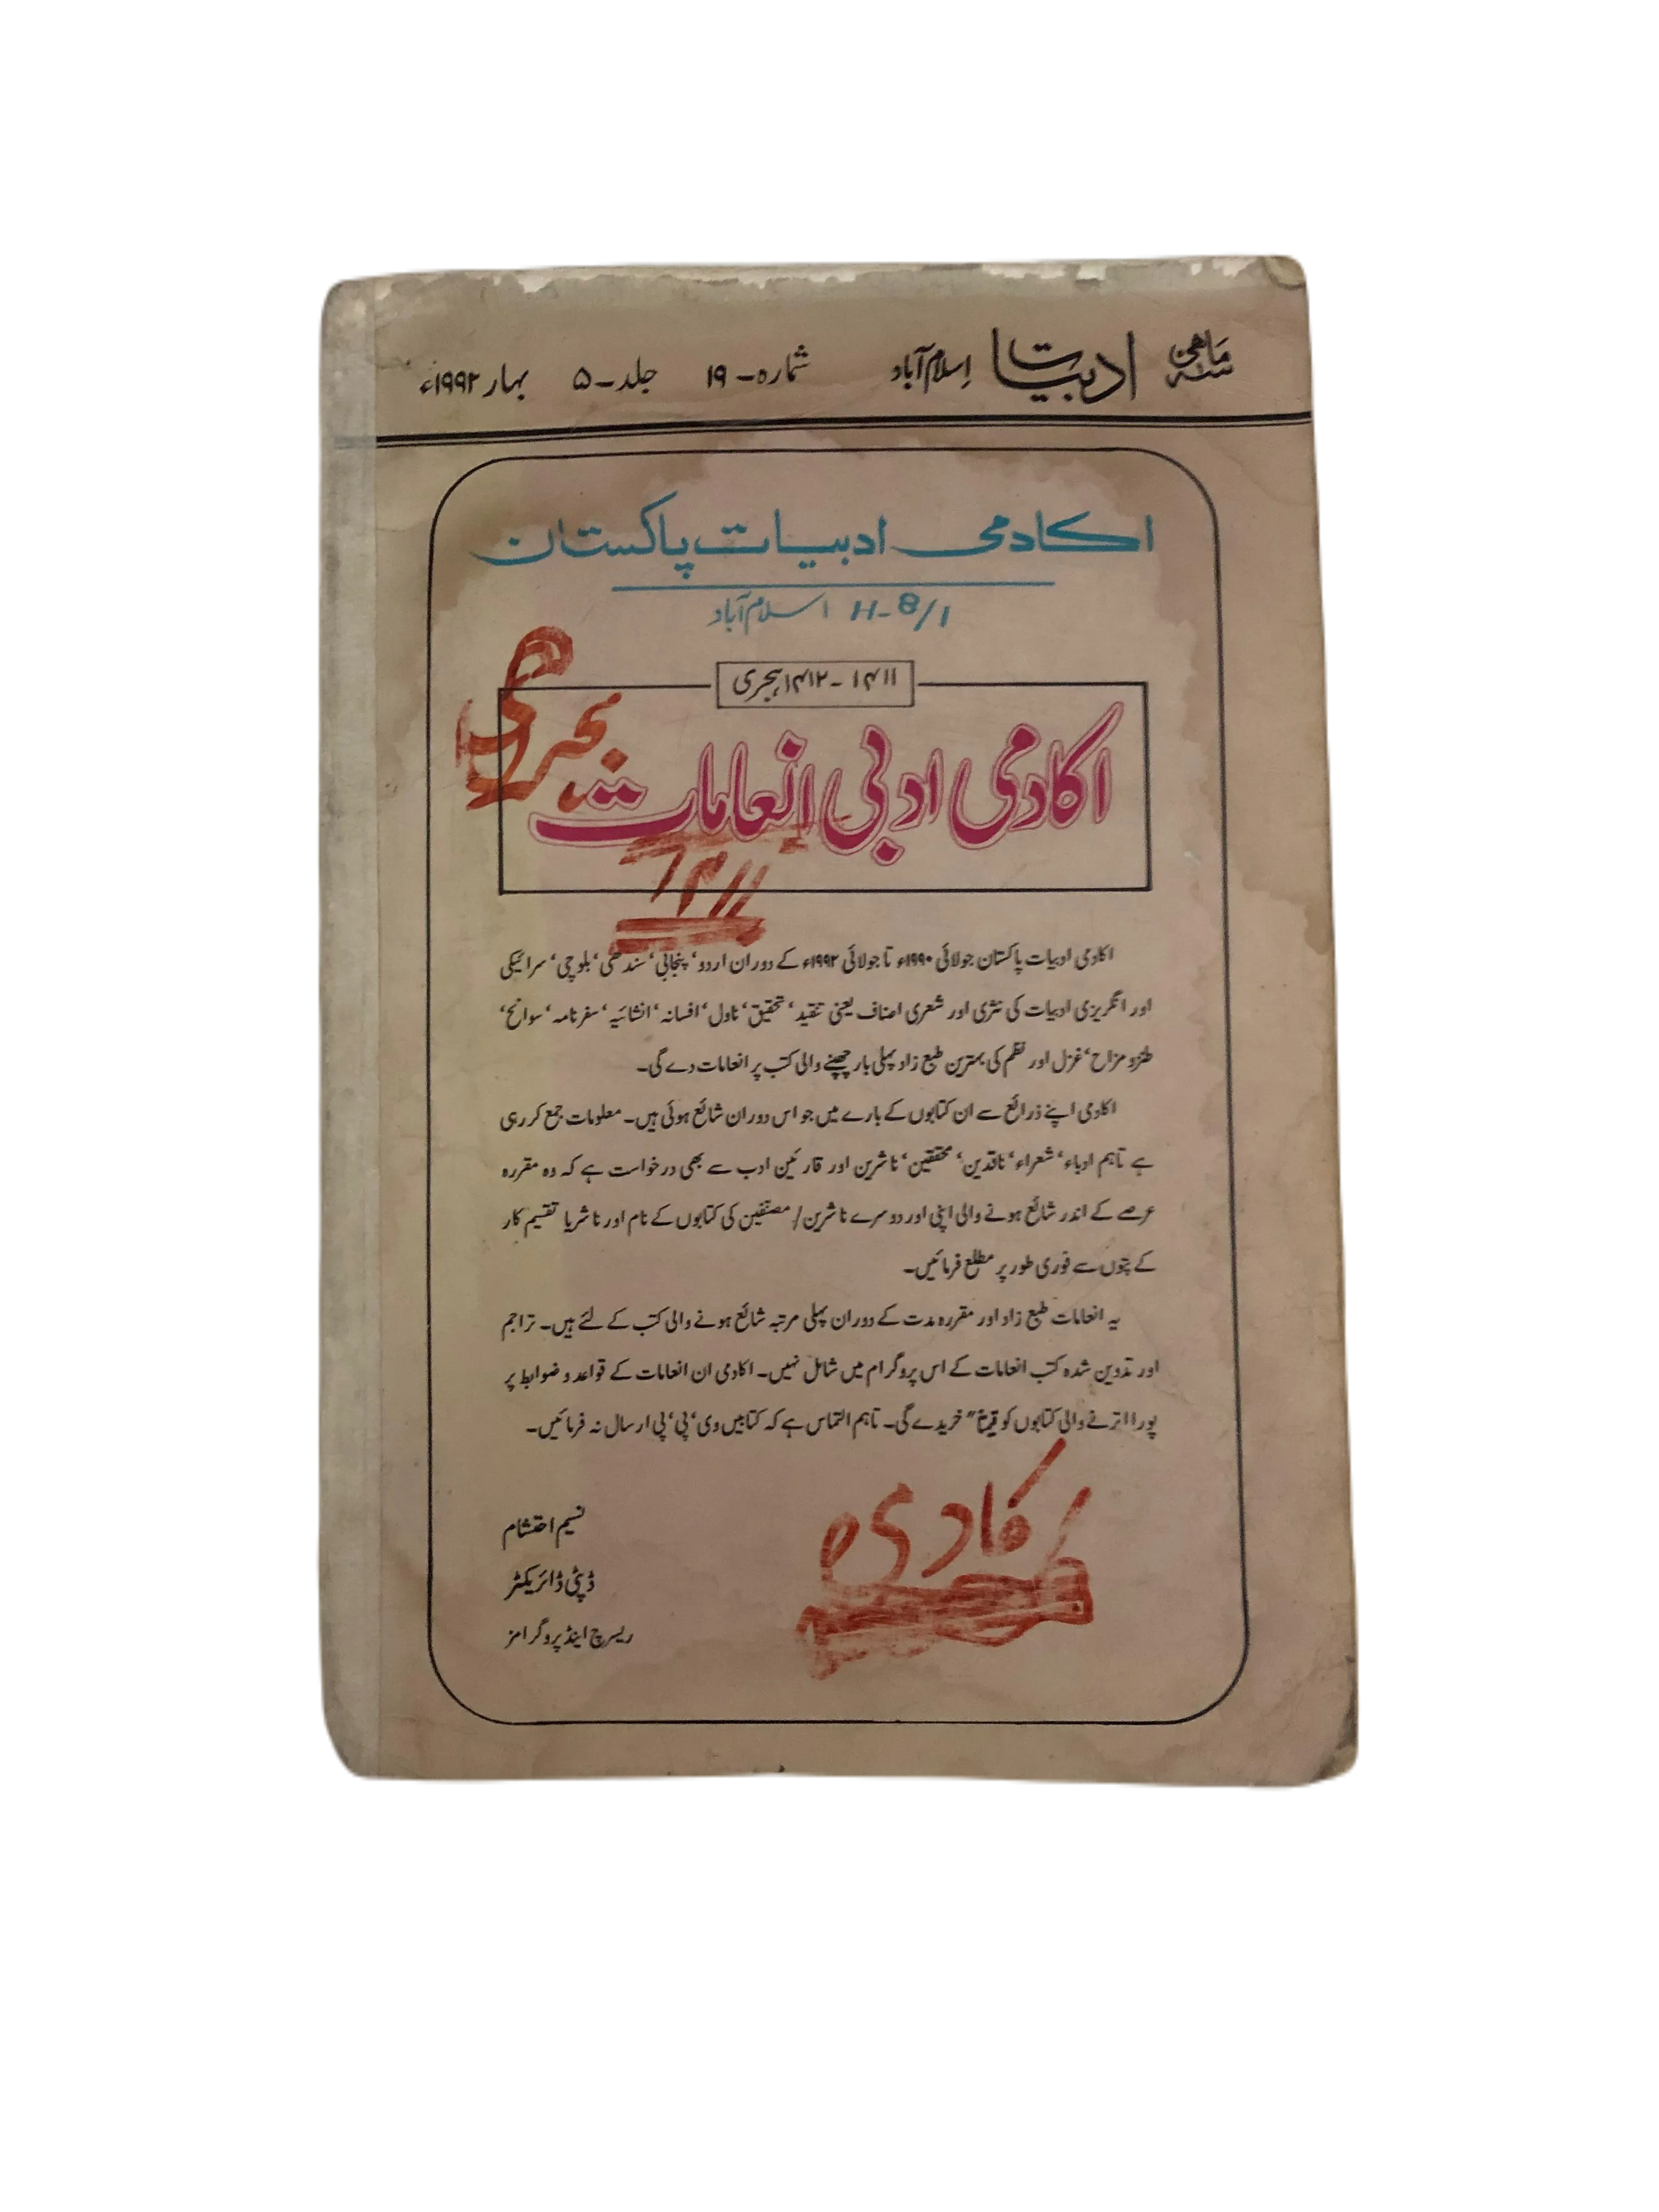 سہ ماہی ادبیات اسلام آباد شمارہ-۱۹ جلد-۵ بہار ۱۹۹۲ء
اکادمی ادبیات پاکستان
H-8/1 اسلام آباد
۱۴۱۱-۱۴۱۲ہجری
اکادمی ادبی انعامات
ہجری
۱۴۱۱
اکادمی ادبیات پاکستان جولائی ۱۹۹۰ء تا جولائی ۱۹۹۲ء کے دوران اردو‘ پنجابی‘ سندھی‘ بلوچی‘ سرائیکی
اور انگریزی ادبیات کی نثری اور شعری اصناف یعنی تنقید‘ تحقیق‘ ناول‘ افسانہ‘ انشائیہ‘ سفرنامہ‘ سوانح‘
طنز و مزاح‘ غزل اور نظم کی بہترین طبع زاد پہلی بار چھپنے والی کتب پر انعامات دے گی۔
اکادمی اپنے ذرائع سے ان کتابوں کے بارے میں جو اس دوران شائع ہوئی ہیں۔ معلومات جمع کر رہی
ہے تاہم ادباء‘ شعراء‘ ناقدین‘ محققین‘ ناشرین اور قارئین ادب سے بھی درخواست ہے کہ وہ مقررہ
عرصے کے اندر شائع ہونے والی اپنی اور دوسرے ناشرین/مصنفین کی کتابوں کے نام اور ناشر یا تقسیم کار
کے پتوں سے فوری طور پر مطلع فرمائیں۔
یہ انعامات طبع زاد اور مقررہ مدت کے دوران پہلی مرتبہ شائع ہونے والی کتب کے لئے ہیں۔ تراجم
اور تدوین شدہ کتب انعامات کے اس پروگرام میں شامل نہیں۔ اکادمی ان انعامات کے قواعد و ضوابط پر
پورا اترنے والی کتابوں کو قیمتاً“ خریدے گی۔ تاہم التماس ہے کہ کتابیں وی‘ پی‘ پی ارسال نہ فرمائیں۔
نسیم احتشام
ڈپٹی ڈائریکٹر
ریسرچ اینڈ پروگرامز